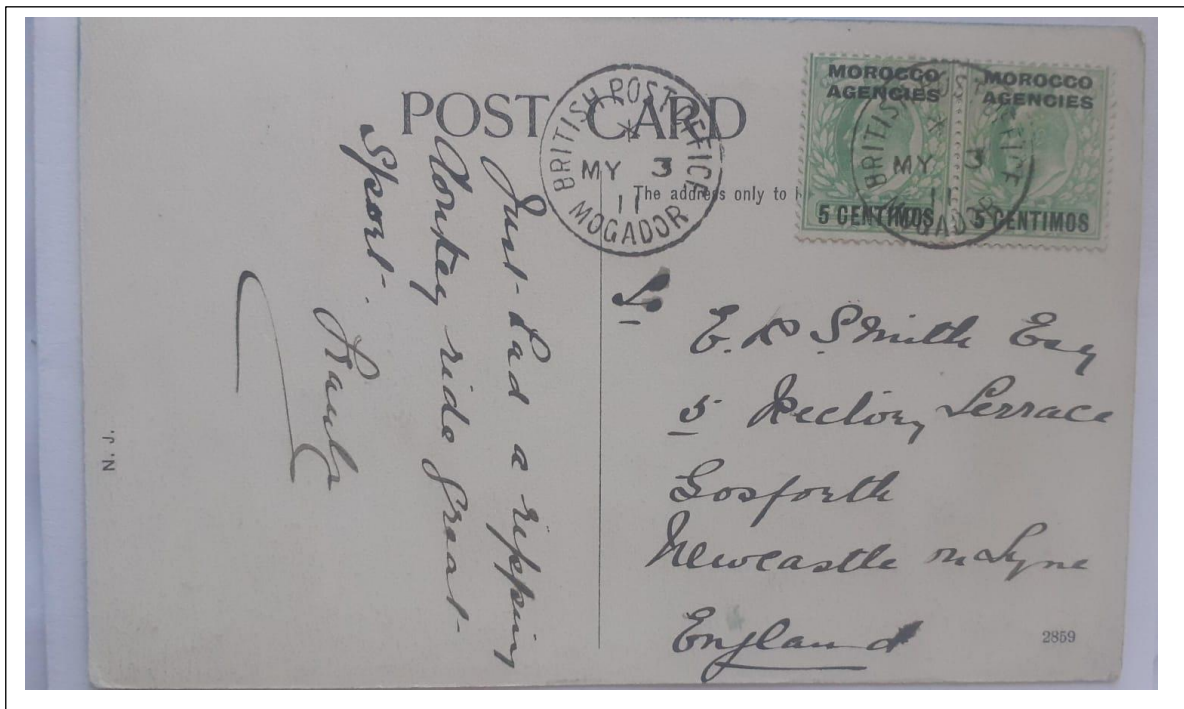 POST CARD
BRITISH POST OFFICE
MY 3
11
MOGADOR
MOROCCO
AGENCIES
5 CENTIMOS
MOROCCO
AGENCIES
5 CENTIMOS
BRITISH POST OFFICE
MY 3
11
MOGADOR
The address only to
Just had a ripping
donkey ride great
Sport.
E. R Smith Esq
5 Rectory Terrace
Gosforth
Newcastle on Tyne
England
N. J.
2859